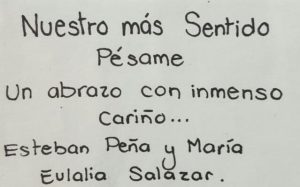 Nuestro más Sentido
Pésame
Un abrazo con inmenso
Cariño...
Esteban Peña y María
Eulalia Salazar.